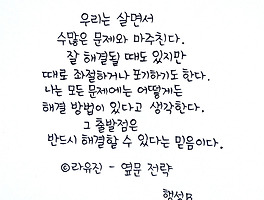 우리는 살면서
수많은 문제와 마주친다.
잘 해결될 때도 있지만
때로 좌절하거나 포기하기도 한다.
나는 모든 문제에는 어떻게든
해결 방법이 있다고 생각한다.
그 출발점은
반드시 해결할 수 있다는 믿음이다.
©라유진 - 옆문 전략